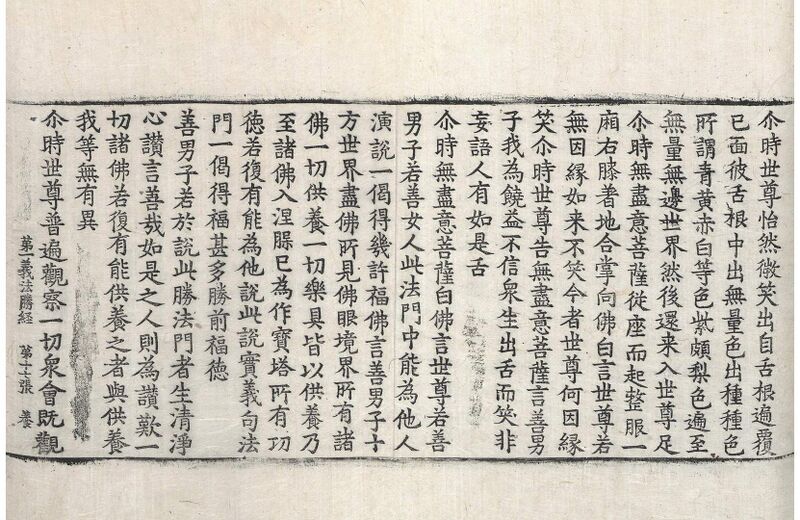 尒時世尊怡然微笑出自舌根遍覆
已面彼舌根中出無量色出種種色
所謂青黃赤白等色紫頗梨色遍至
無量無邊世界然後還来入世尊足
尒時無盡意菩薩從座而起整服一
廂右膝著地合掌向佛白言世尊若
無因緣如来不笑今者世尊何因緣
笑尒時世尊告無盡意菩薩言善男
子我為饒益不信衆生出舌而笑非
妄語人有如是舌
尒時無盡意菩薩白佛言世尊若善
男子若善女人此法門中能為他人
演說一偈得幾許福佛言善男子十
方世界盡佛所見佛眼境界所有諸
佛一切供養一切樂具皆以供養乃
至諸佛入涅槃已為作寶塔所有功
德若復有能為他說此說實義句法
門一偈得福甚多勝前福德
善男子若於說此勝法門者生清淨
心讚言善哉如是之人則為讚歎一
切諸佛若復有能供養之者與供養
我等無有異
尒時世尊普遍觀察一切衆會既觀
第一義法勝経 第十張 養